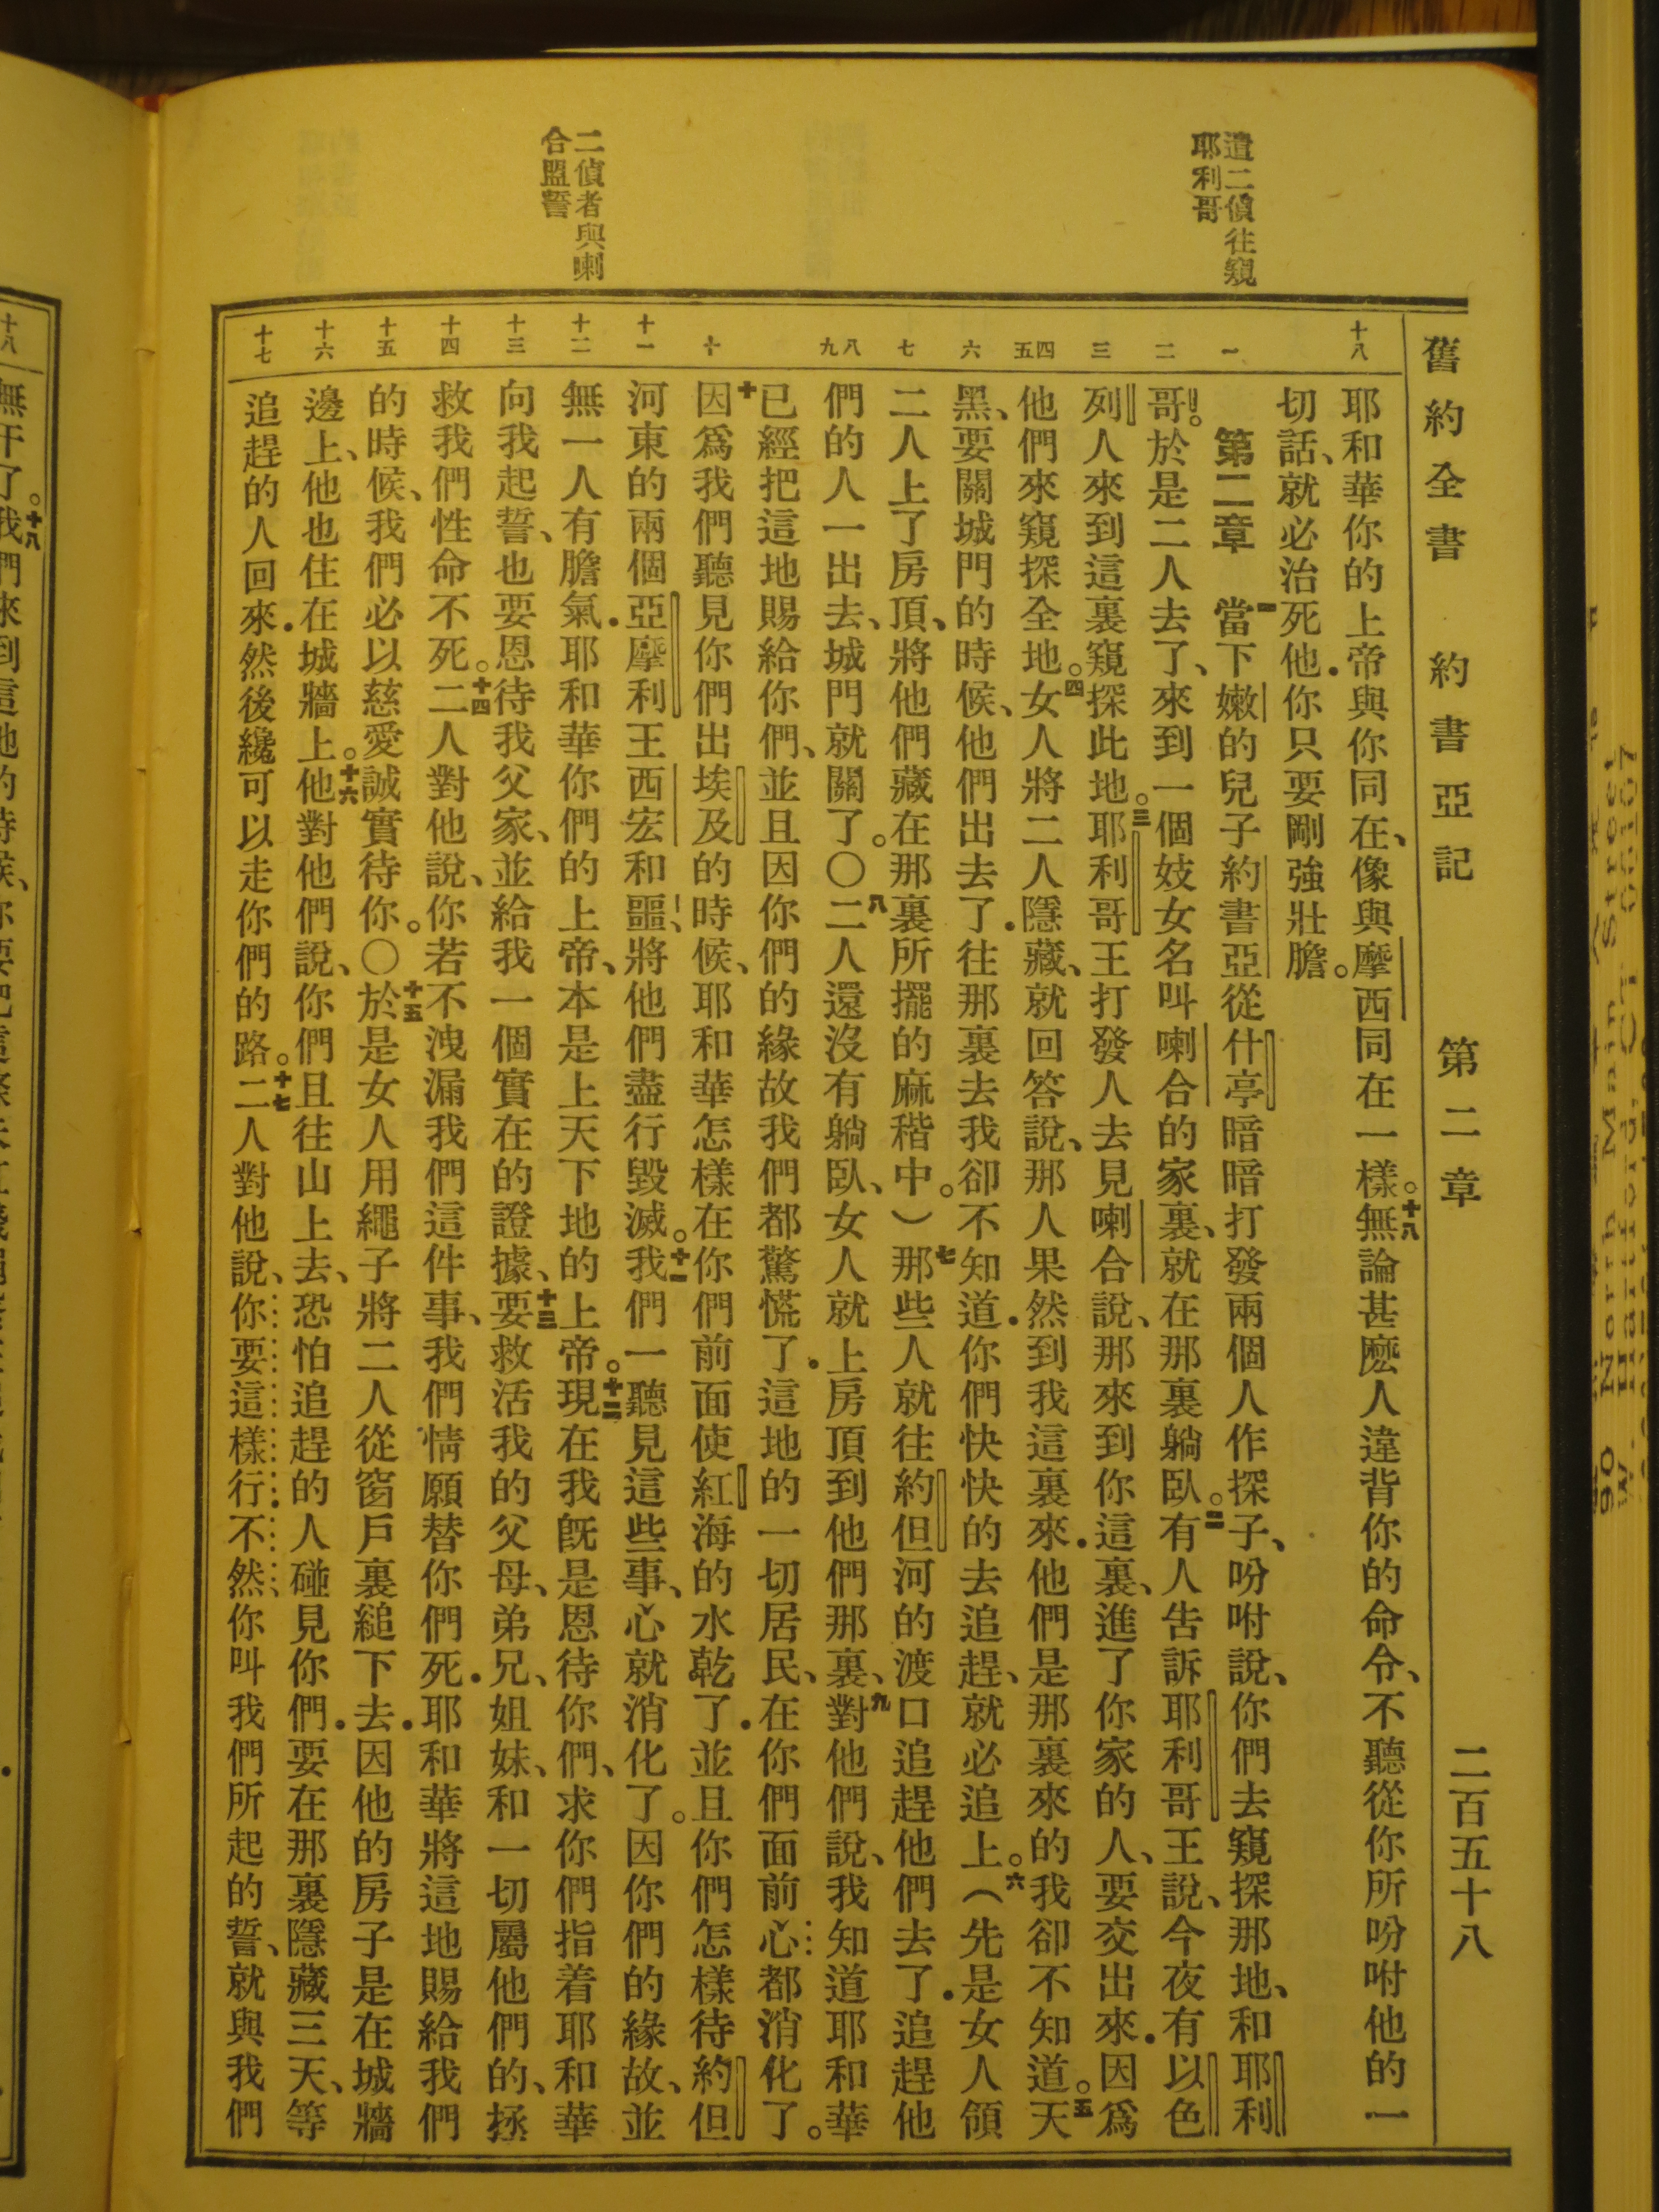 舊約全書 約書亞記 第二章 二百五十八
遣二偵往窺
耶利哥
二偵者與喇
合盟誓
十八
一
二
三
四
五
六
七
八
九
十
十一
十二
十三
十四
十五
十六
十七
耶和華你的上帝與你同在、像與摩西同在一樣。十八無論甚麽人違背你的命令、不聽從你所吩咐他的一
切話、就必治死他．你只要剛強壯膽。
第二章 一當下嫩的兒子約書亞從什亭暗暗打發兩個人作探子、吩咐說、你們去窺探那地、和耶利
哥。於是二人去了、來到一個妓女名叫喇合的家裏、就在那裏躺臥。二有人告訴耶利哥王說、今夜有以色
列人來到這裏窺探此地。三耶利哥王打發人去見喇合說、那來到你這裏、進了你家的人、要交出來．因爲
他們來窺探全地。四女人將二人隱藏、就回答說、那人果然到我這裏來．他們是那裏來的我卻不知道。五天
黑、要關城門的時候、他們出去了．往那裏去我卻不知道．你們快快的去追趕、就必追上。六（先是女人領
二人上了房頂、將他們藏在那裏所擺的麻稭中。）七那些人就往約但河的渡口追趕他們去了．追趕他
們的人一出去、城門就關了。〇八二人還沒有躺臥、女人就上房頂到他們那裏、九對他們說、我知道耶和華
已經把這地賜給你們、並且因你們的緣故我們都驚慌了．這地的一切居民、在你們面前心都消化了。
十因爲我們聽見你們出埃及的時候、耶和華怎樣在你們前面使紅海的水乾了．並且你們怎樣待約但
河東的兩個亞摩利王西宏和噩、將他們盡行毀滅。十一我們一聽見這些事、心就消化了。因你們的緣故、並
無一人有膽氣．耶和華你們的上帝、本是上天下地的上帝。十二現在我旣是恩待你們、求你們指着耶和華
向我起誓、也要恩待我父家、並給我一個實在的證據、十三要救活我的父母、弟兄、姐妹、和一切屬他們的、拯
救我們性命不死。十四二人對他說、你若不洩漏我們這件事、我們情願替你們死．耶和華將這地賜給我們
的時候、我們必以慈愛誠實待你。〇十五於是女人用繩子將二人從窗戶裏縋下去．因他的房子是在城牆
邊上、他也住在城牆上。十六他對他們說、你們且往山上去、恐怕追趕的人碰見你們．要在那裏隱藏三天、等
追趕的人回來．然後纔可以走你們的路。十七二人對他說、你要這樣行．不然、你叫我們所起的誓、就與我們
十八
無干了。十八我們來到這地的時候、你要把這條朱紅線繩